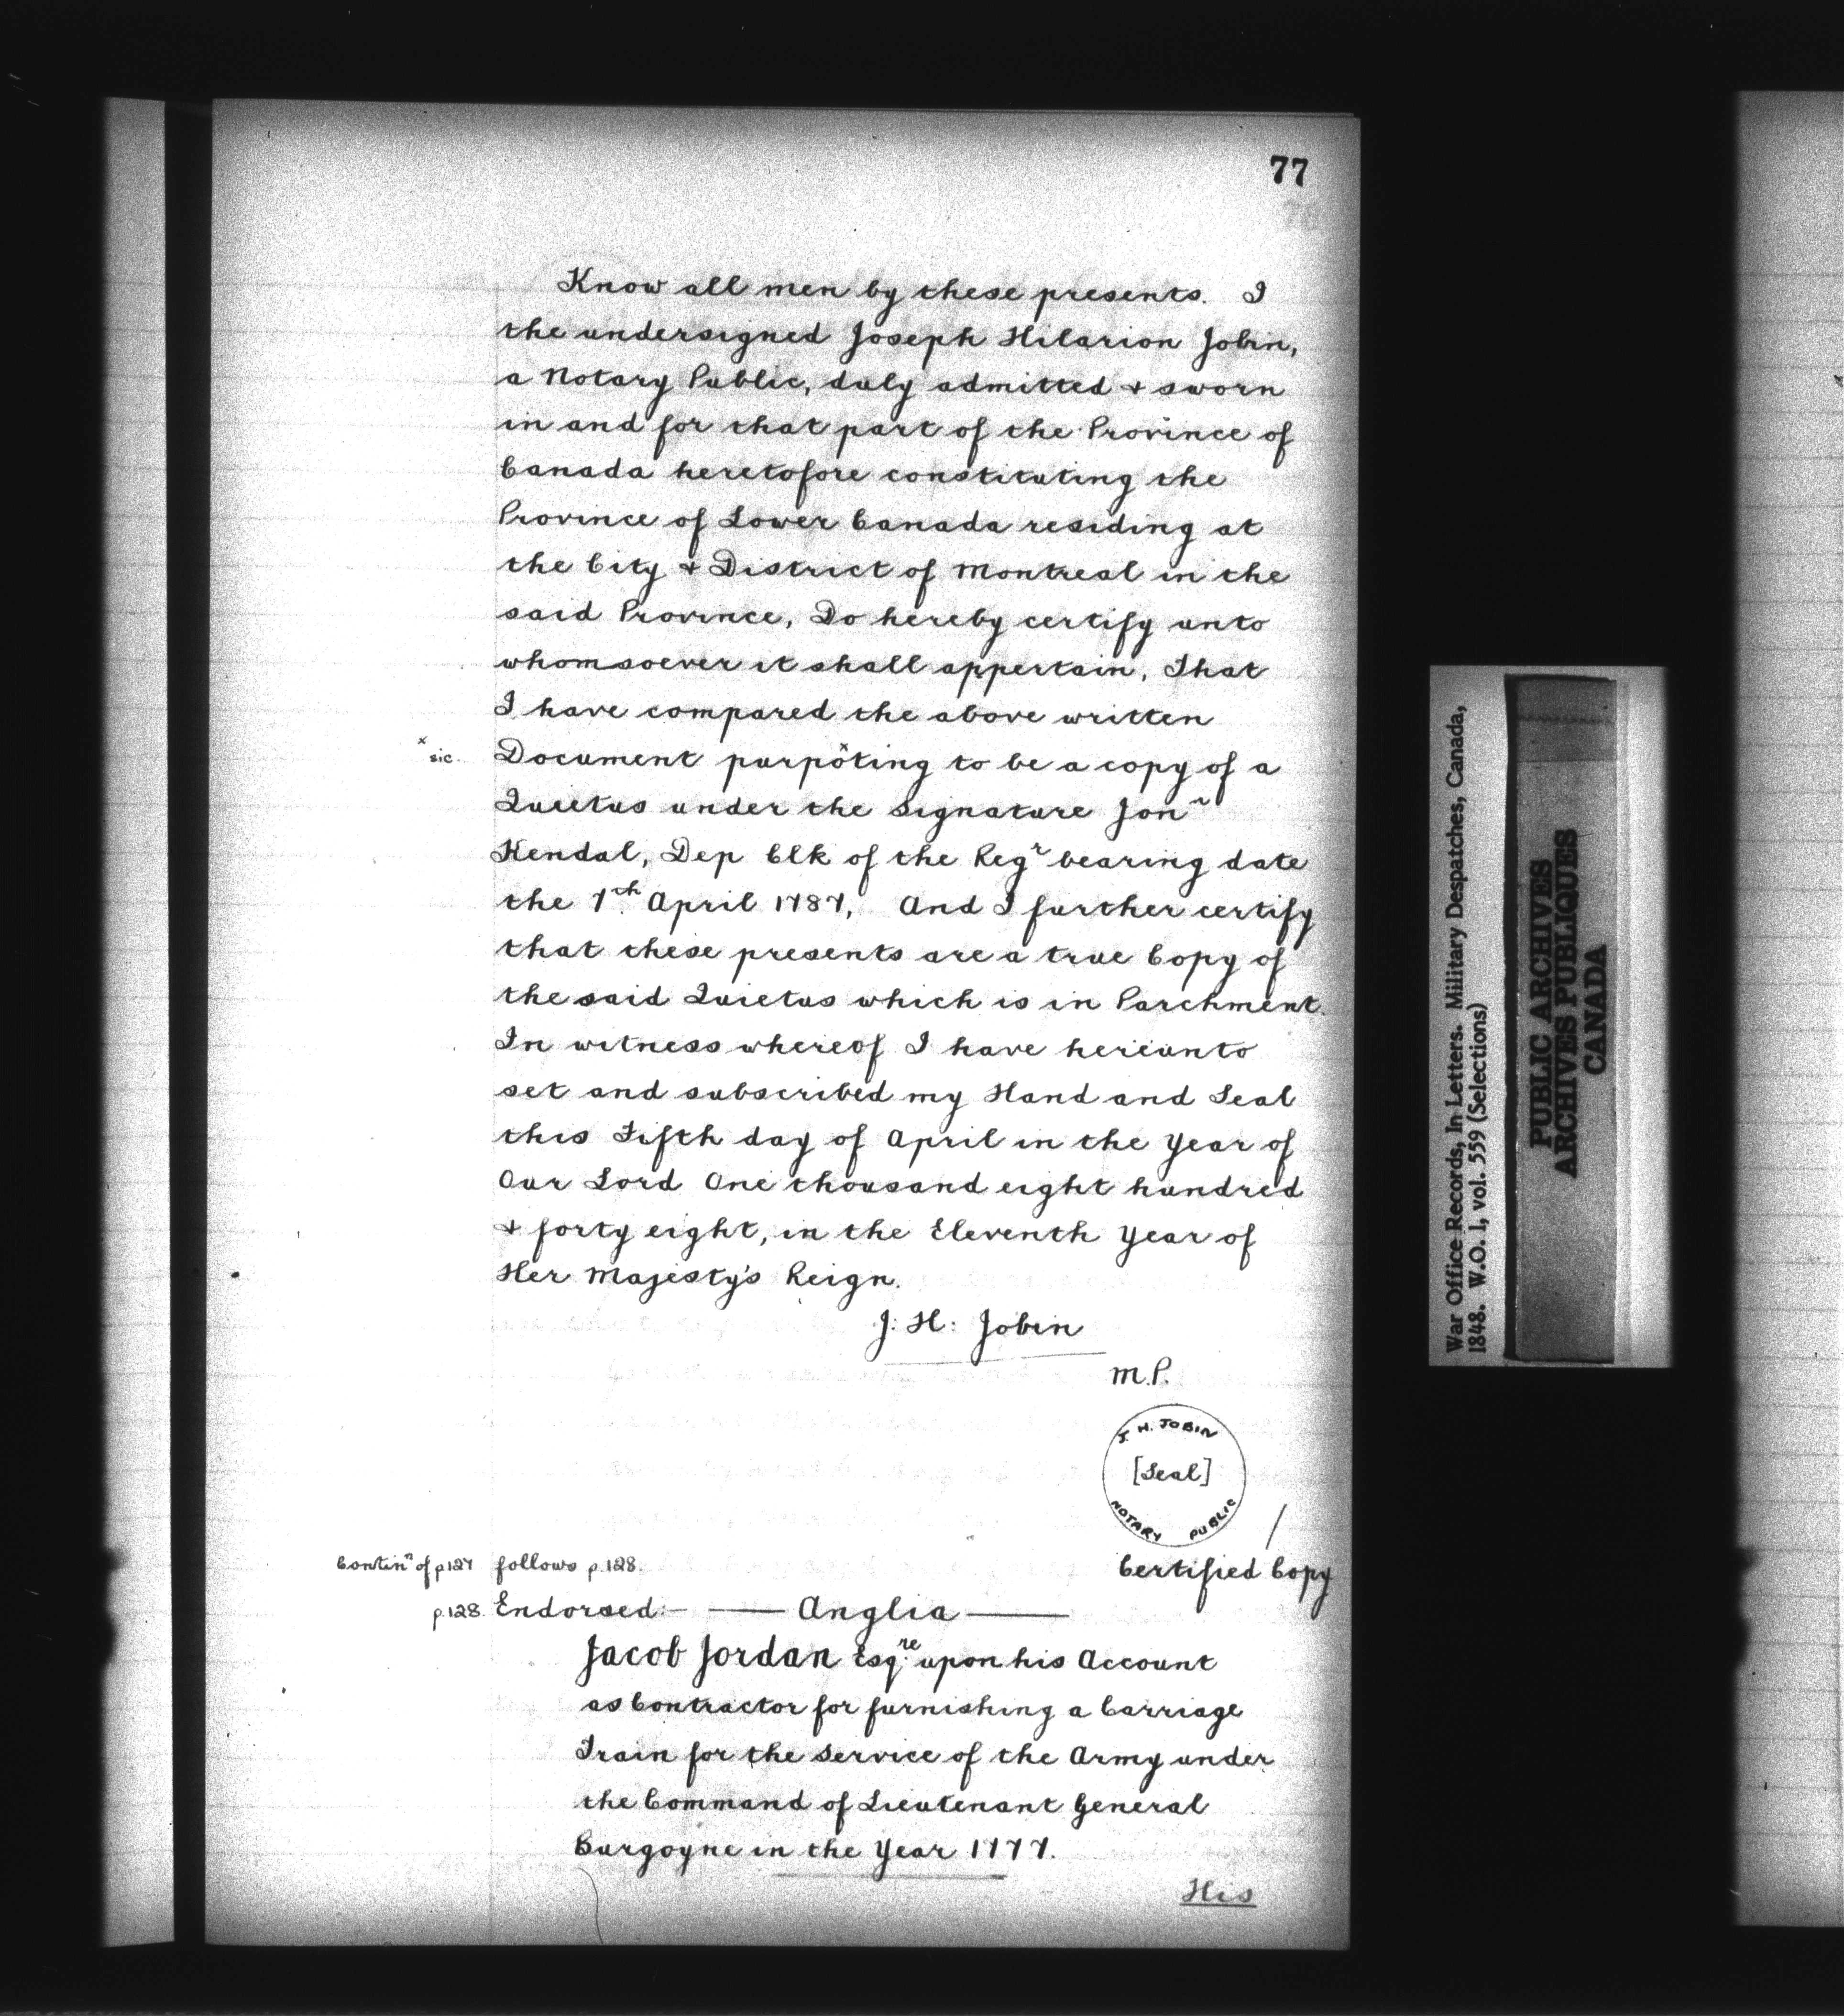 77
Know all men by these presents. I
the undersigned Joseph Hilarion Jobin,
a Notary Public, duly admitted & sworn
in and for that part of the Province of
Canada heretofore constituting the
Province of Lower Canada residing at
the City & District of Montreal in the
said Province, Do hereby certify unto
whomsoever it shall appertain, That
I have compared the above written
x sic. Document purpoting to be a copy of a
Quietus under the Signature Jonn
Kendal, Dep Clk of the Regr bearing date
the 7th April 1787, And I further certify
that these presents are a true Copy of
the said Quietus which is in Parchment.
In witness whereof I have hereunto
set and subscribed my Hand and Seal
this Fifth day of April in the Year of
Our Lord One thousand eight hundred
& forty eight, in the Eleventh Year of
Her Majesty's Reign.
J: H: Jobin
N.P.
J. H. JOBIN
[Seal]
NOTARY PUBLIC
Continn of p127 follows p.128.
Certified Copy
p.128. Endorsed:— —— Anglia ——
Jacob Jordan Esqre upon his Account
as Contractor for furnishing a Carriage
Train for the Service of the Army under
the Command of Lieutenant General
Burgoyne in the Year 1777.
His
War Office Records, In Letters. Military Despatches, Canada,
1848. W.O. 1, vol. 559 (Selections)
PUBLIC ARCHIVES
ARCHIVES PUBLIQUES
CANADA